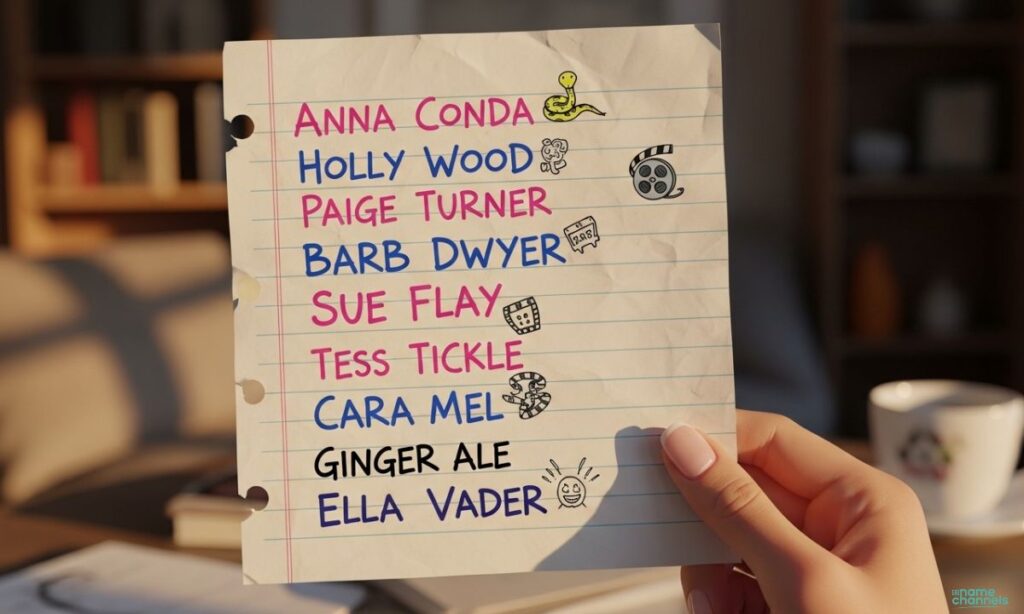 ANNA CONDA
HOLLY WOOD
PAIGE TURNER
BARB DWYER
SUE FLAY
TESS TICKLE
CARA MEL
GINGER ALE
ELLA VADER
name
channels